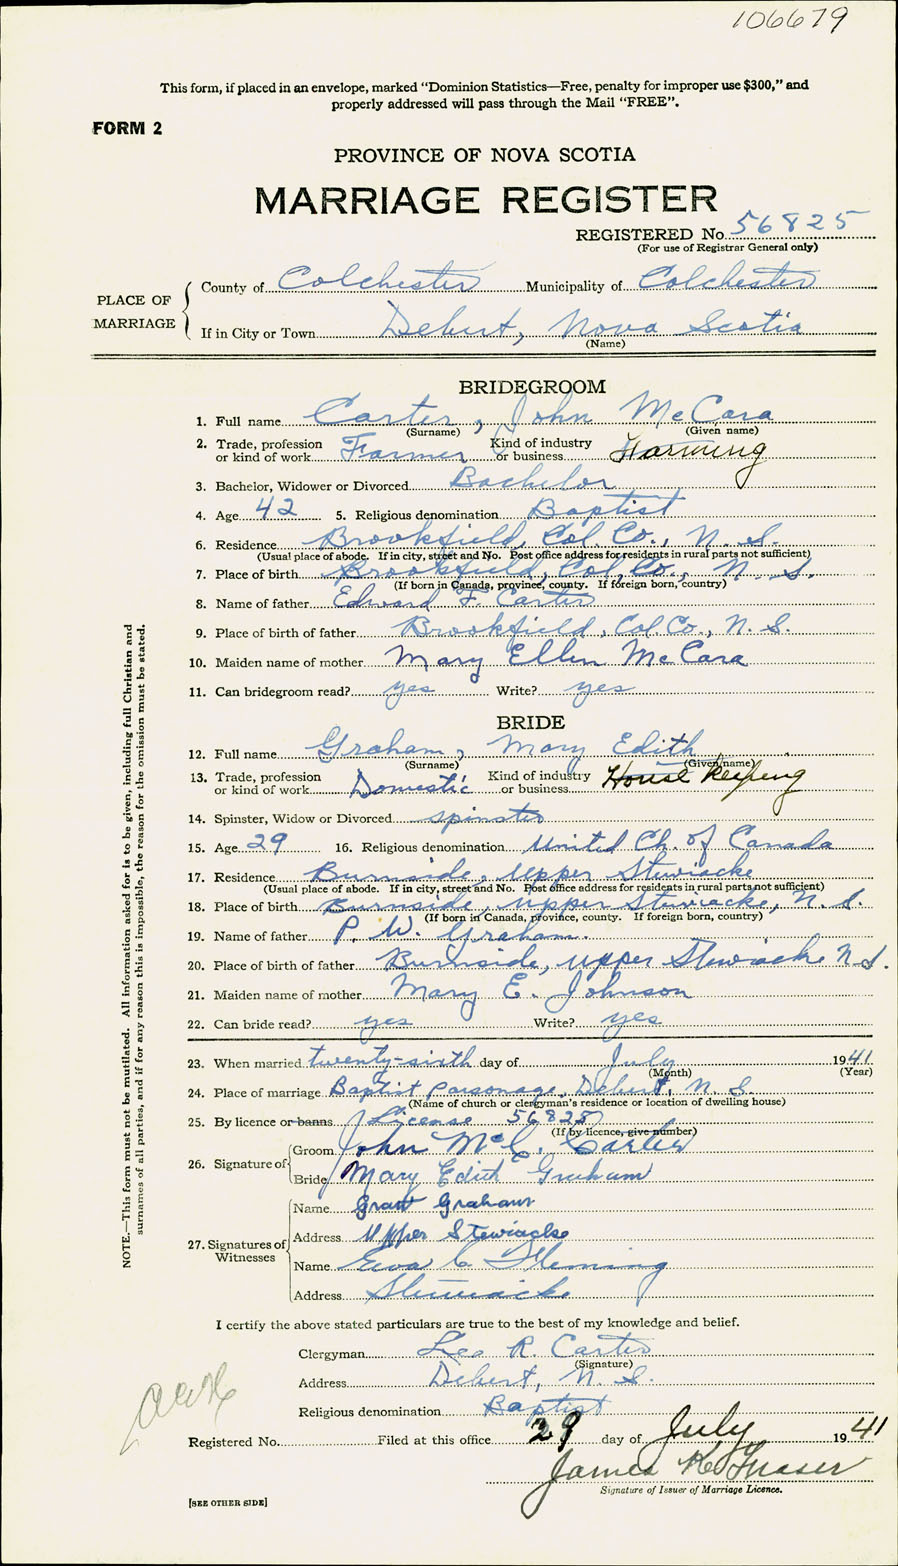 106679
This form, if placed in an envelope, marked "Dominion Statistics—Free, penalty for improper use $300," and
properly addressed will pass through the Mail "FREE".
FORM 2
PROVINCE OF NOVA SCOTIA
MARRIAGE REGISTER
REGISTERED No. 56825
(For use of Registrar General only)
PLACE OF MARRIAGE
County of Colchester Municipality of Colchester
If in City or Town Debert, Nova Scotia
(Name)
BRIDEGROOM
1. Full name Carter, John McCara
(Surname) (Given name)
2. Trade, profession or kind of work Farmer Kind of industry or business Farming
3. Bachelor, Widower or Divorced Bachelor
4. Age 42 5. Religious denomination Baptist
6. Residence Brookfield, Col. Co., N. S.
(Usual place of abode. If in city, street and No. Post office address for residents in rural parts not sufficient)
7. Place of birth Brookfield, Col. Co., N. S.
(If born in Canada, province, county. If foreign born, country)
8. Name of father Edward F. Carter
9. Place of birth of father Brookfield, Col Co., N. S.
10. Maiden name of mother Mary Ellen McCara
11. Can bridegroom read? yes Write? yes
BRIDE
12. Full name Graham, Mary Edith
(Surname) (Given name)
13. Trade, profession or kind of work Domestic Kind of industry or business House keeping
14. Spinster, Widow or Divorced spinster
15. Age 29 16. Religious denomination United Ch. of Canada
17. Residence Burnside, Upper Stewiacke
(Usual place of abode. If in city, street and No. Post office address for residents in rural parts not sufficient)
18. Place of birth Burnside, Upper Stewiacke, N. S.
(If born in Canada, province, county. If foreign born, country)
19. Name of father P. W. Graham.
20. Place of birth of father Burnside, Upper Stewiacke N.S.
21. Maiden name of mother Mary E. Johnson
22. Can bride read? yes Write? yes
23. When married twenty-sixth day of July 1941
(Month) (Year)
24. Place of marriage Baptist Parsonage, Debert, N. S.
(Name of church or clergyman's residence or location of dwelling house)
25. By licence or banns License 56825
(If by licence, give number)
26. Signature of
Groom John McC. Carter
Bride Mary Edith Graham
27. Signatures of Witnesses
Name Grant Graham
Address Upper Stewiacke
Name Eva C Fleming
Address Stewiacke
I certify the above stated particulars are true to the best of my knowledge and belief.
Clergyman Leo R. Carter
(Signature)
Address Debert, N. S.
Religious denomination Baptist
Registered No. Filed at this office 29 day of July 1941
James K. Fraser
Signature of Issuer of Marriage Licence.
[SEE OTHER SIDE]
NOTE.—This form must not be mutilated. All information asked for is to be given, including full Christian and
surnames of all parties, and if for any reason this is impossible, the reason for the omission must be stated.